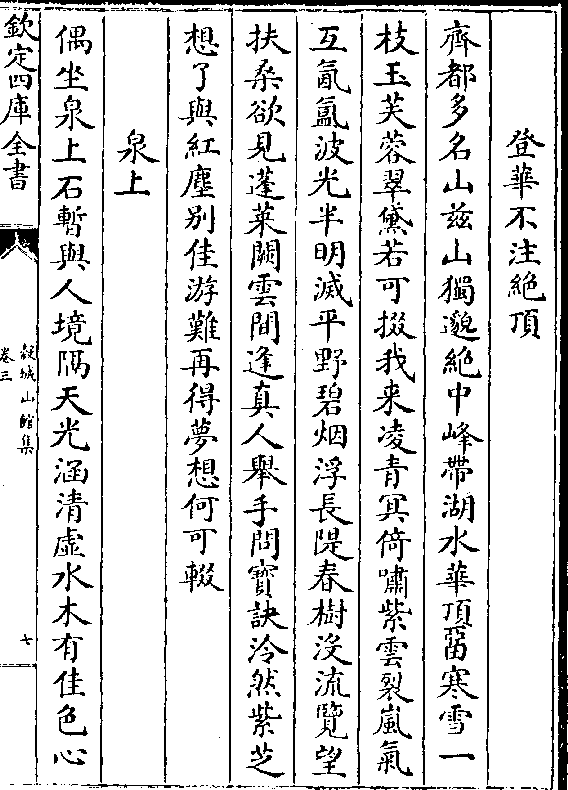 登華不注絶頂
齊都多名山兹山獨邈絶中峰帶湖水華頂畱寒雪一
枝玉芙蓉翠黛若可掇我来凌青冥倚嘯紫雲裂嵐氣
互氤氲波光半明滅平野碧烟浮長隄春樹没流覽望
扶桑欲見蓬萊闕雲間逢真人舉手問寶訣泠然紫芝
想了與紅塵別佳游難再得夢想何可輟
泉上
偶坐泉上石暫與人境隔天光涵清虚水木有佳色心
欽定四庫全書
穀城山館集
卷三
七